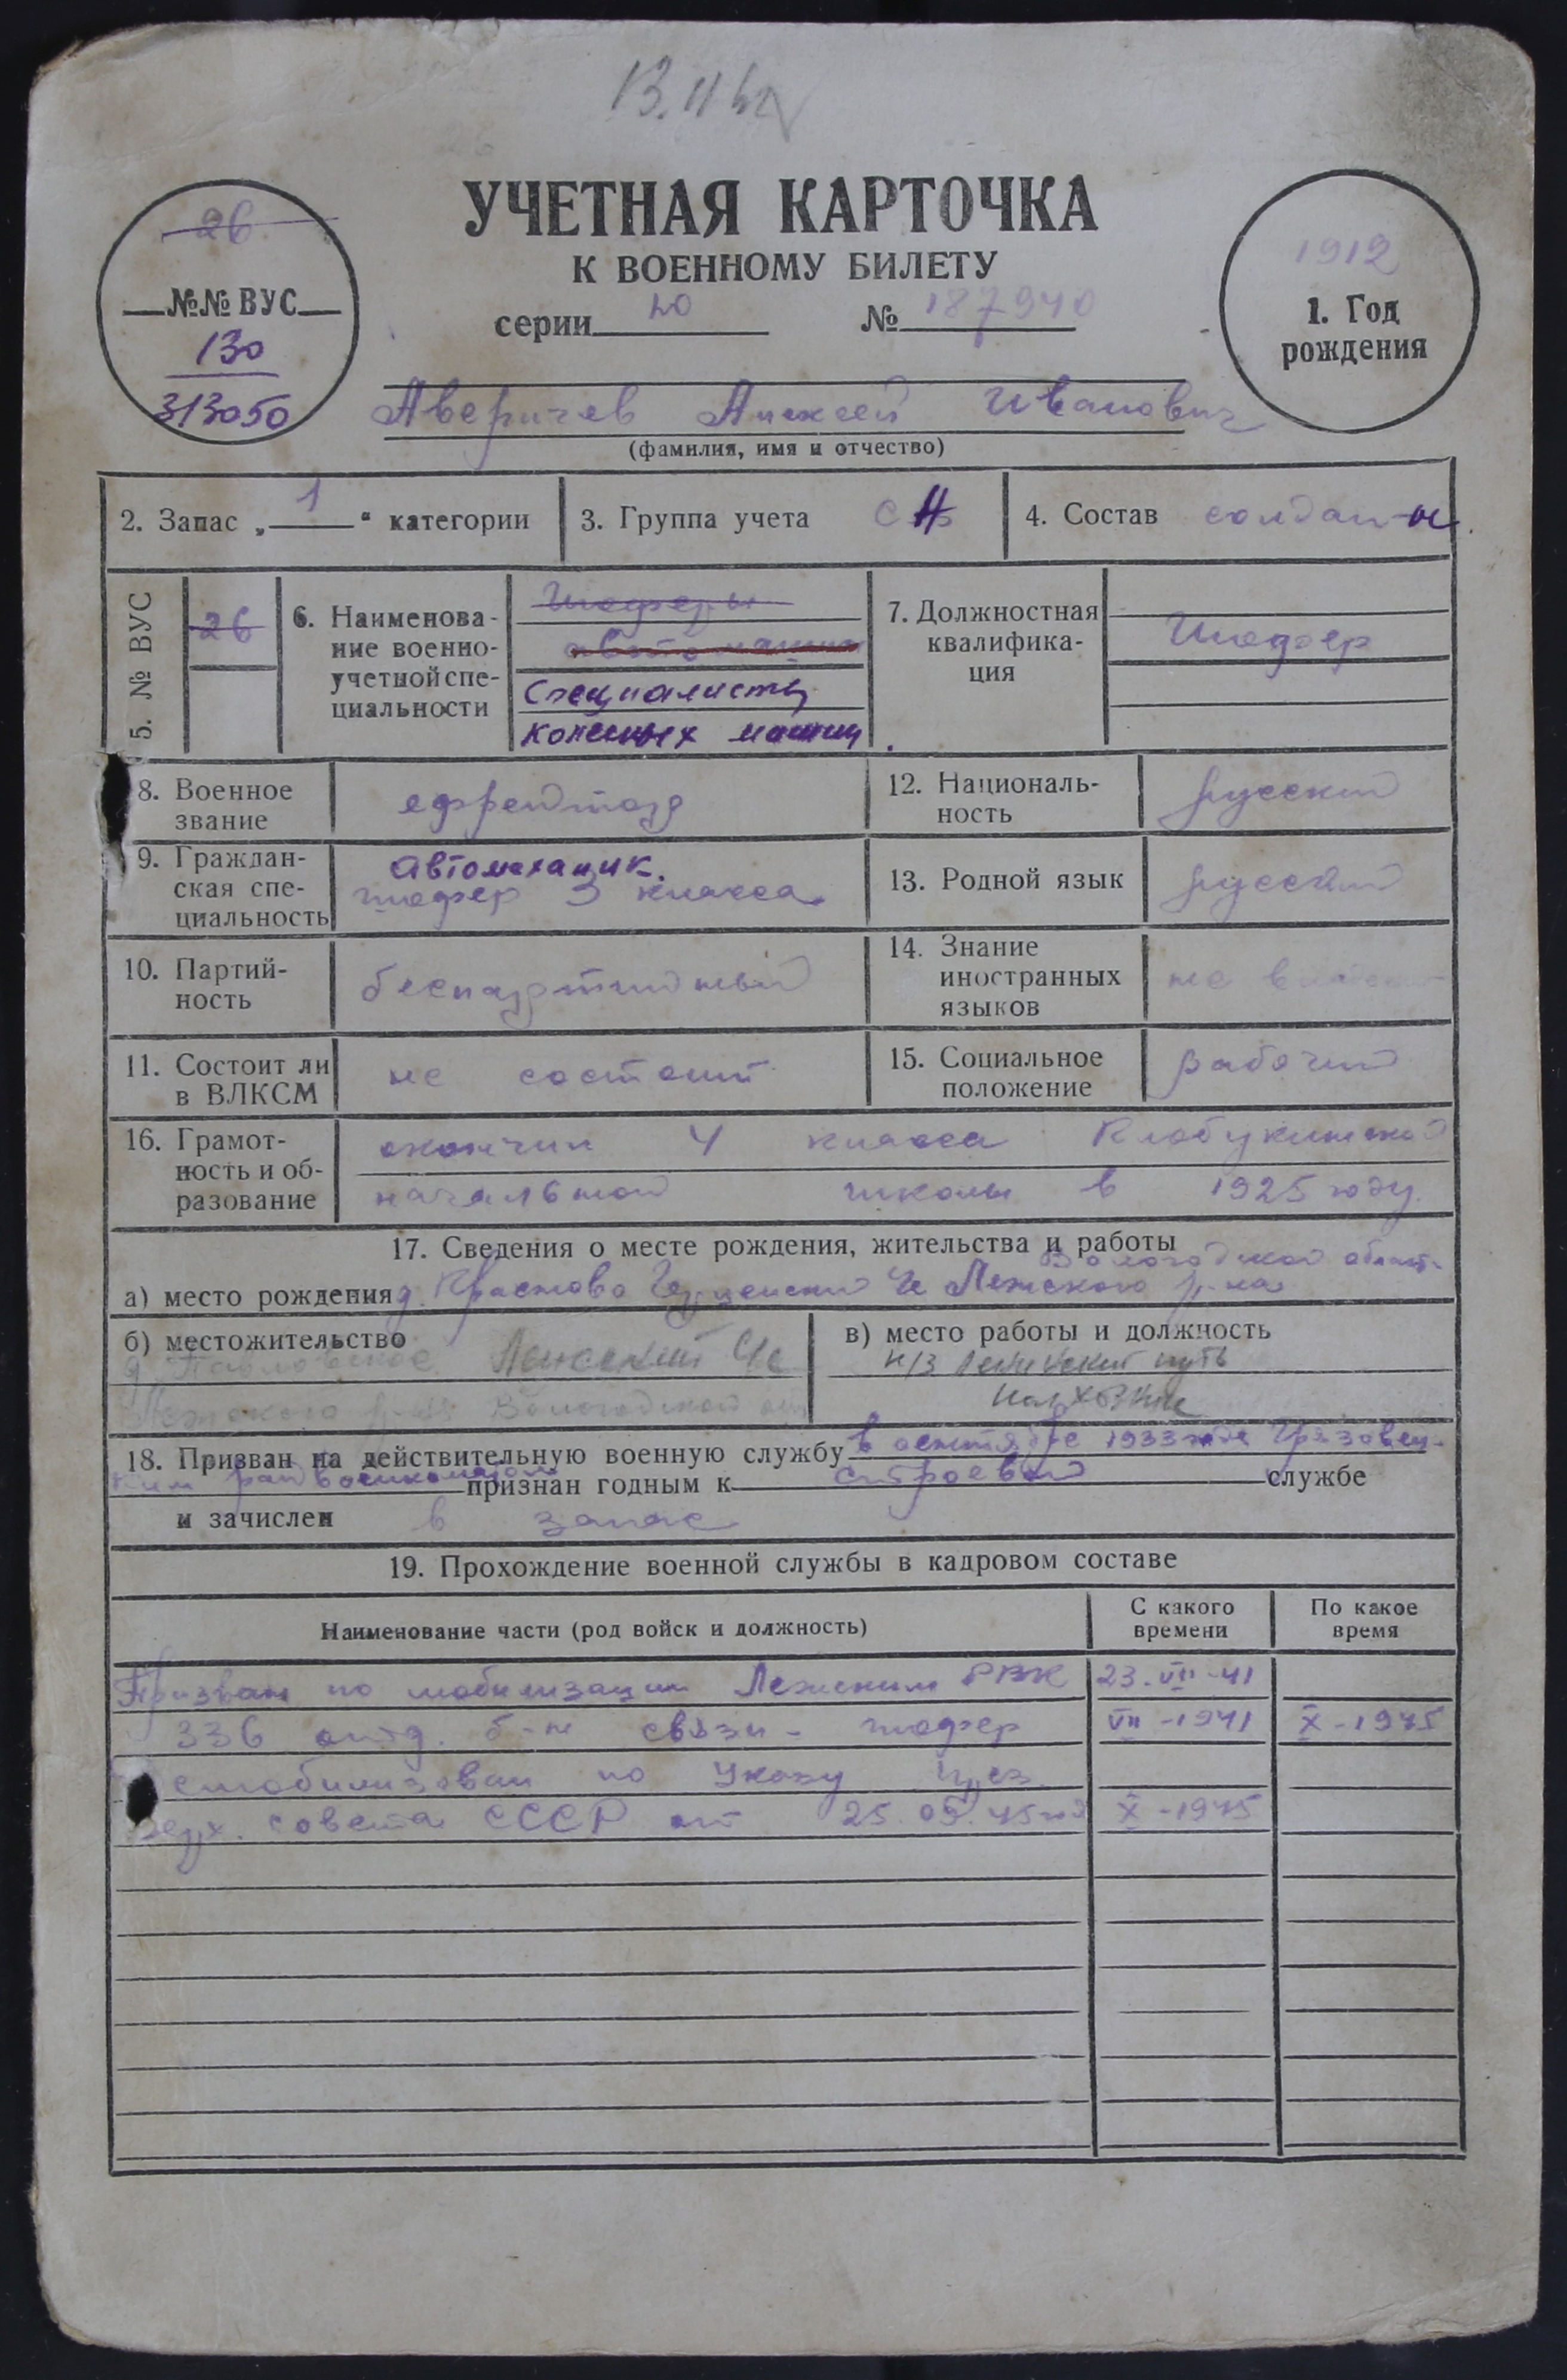 13.11
УЧЕТНАЯ КАРТОЧКА
К ВОЕННОМУ БИЛЕТУ
серии 20 № 187940
26
№№ ВУС
130
313050
1912
1. Год
рождения
Аверичев Алексей Иванович
(фамилия, имя и отчество)
2. Запас „1“ категории
3. Группа учета СА
4. Состав солдаты
5. № ВУС 26
6. Наименова-
ние военно-
учетной спе-
циальности
Шоферы
автомашин
Специалисты
колесных машин
7. Должностная
квалифика-
ция
Шофер
8. Военное
звание
ефрейтор
12. Националь-
ность
русский
9. Граждан-
ская спе-
циальность
автомеханик.
шофер 3 класса
13. Родной язык русский
10. Партий-
ность
беспартийный
14. Знание
иностранных
языков
не владеет
11. Состоит ли
в ВЛКСМ
не состоит
15. Социальное
положение
рабочий
16. Грамот-
ность и об-
разование
окончил 4 класса Клобукинской
начальной школы в 1925 году.
17. Сведения о месте рождения, жительства и работы
Вологодской област.
а) место рождения д. Лежского р-на
б) местожительство
д. Павловское Лежский
Лежского р-на Вологодской
в) место работы и должность
к/з Ленинский путь
колхозник
18. Призван на действительную военную службу в 1933 году Грязовец-
ким райвоенкоматом признан годным к строевой службе
и зачислен в запас
19. Прохождение военной службы в кадровом составе
Наименование части (род войск и должность)
С какого
времени
По какое
время
Призван по мобилизации Лежским РВК 23.VII-41
336 отд. б-н связи - шофер VII-1941 X-1945
емобилизован по Указу през.
верх. совета СССР от 25.09.45 X-1945